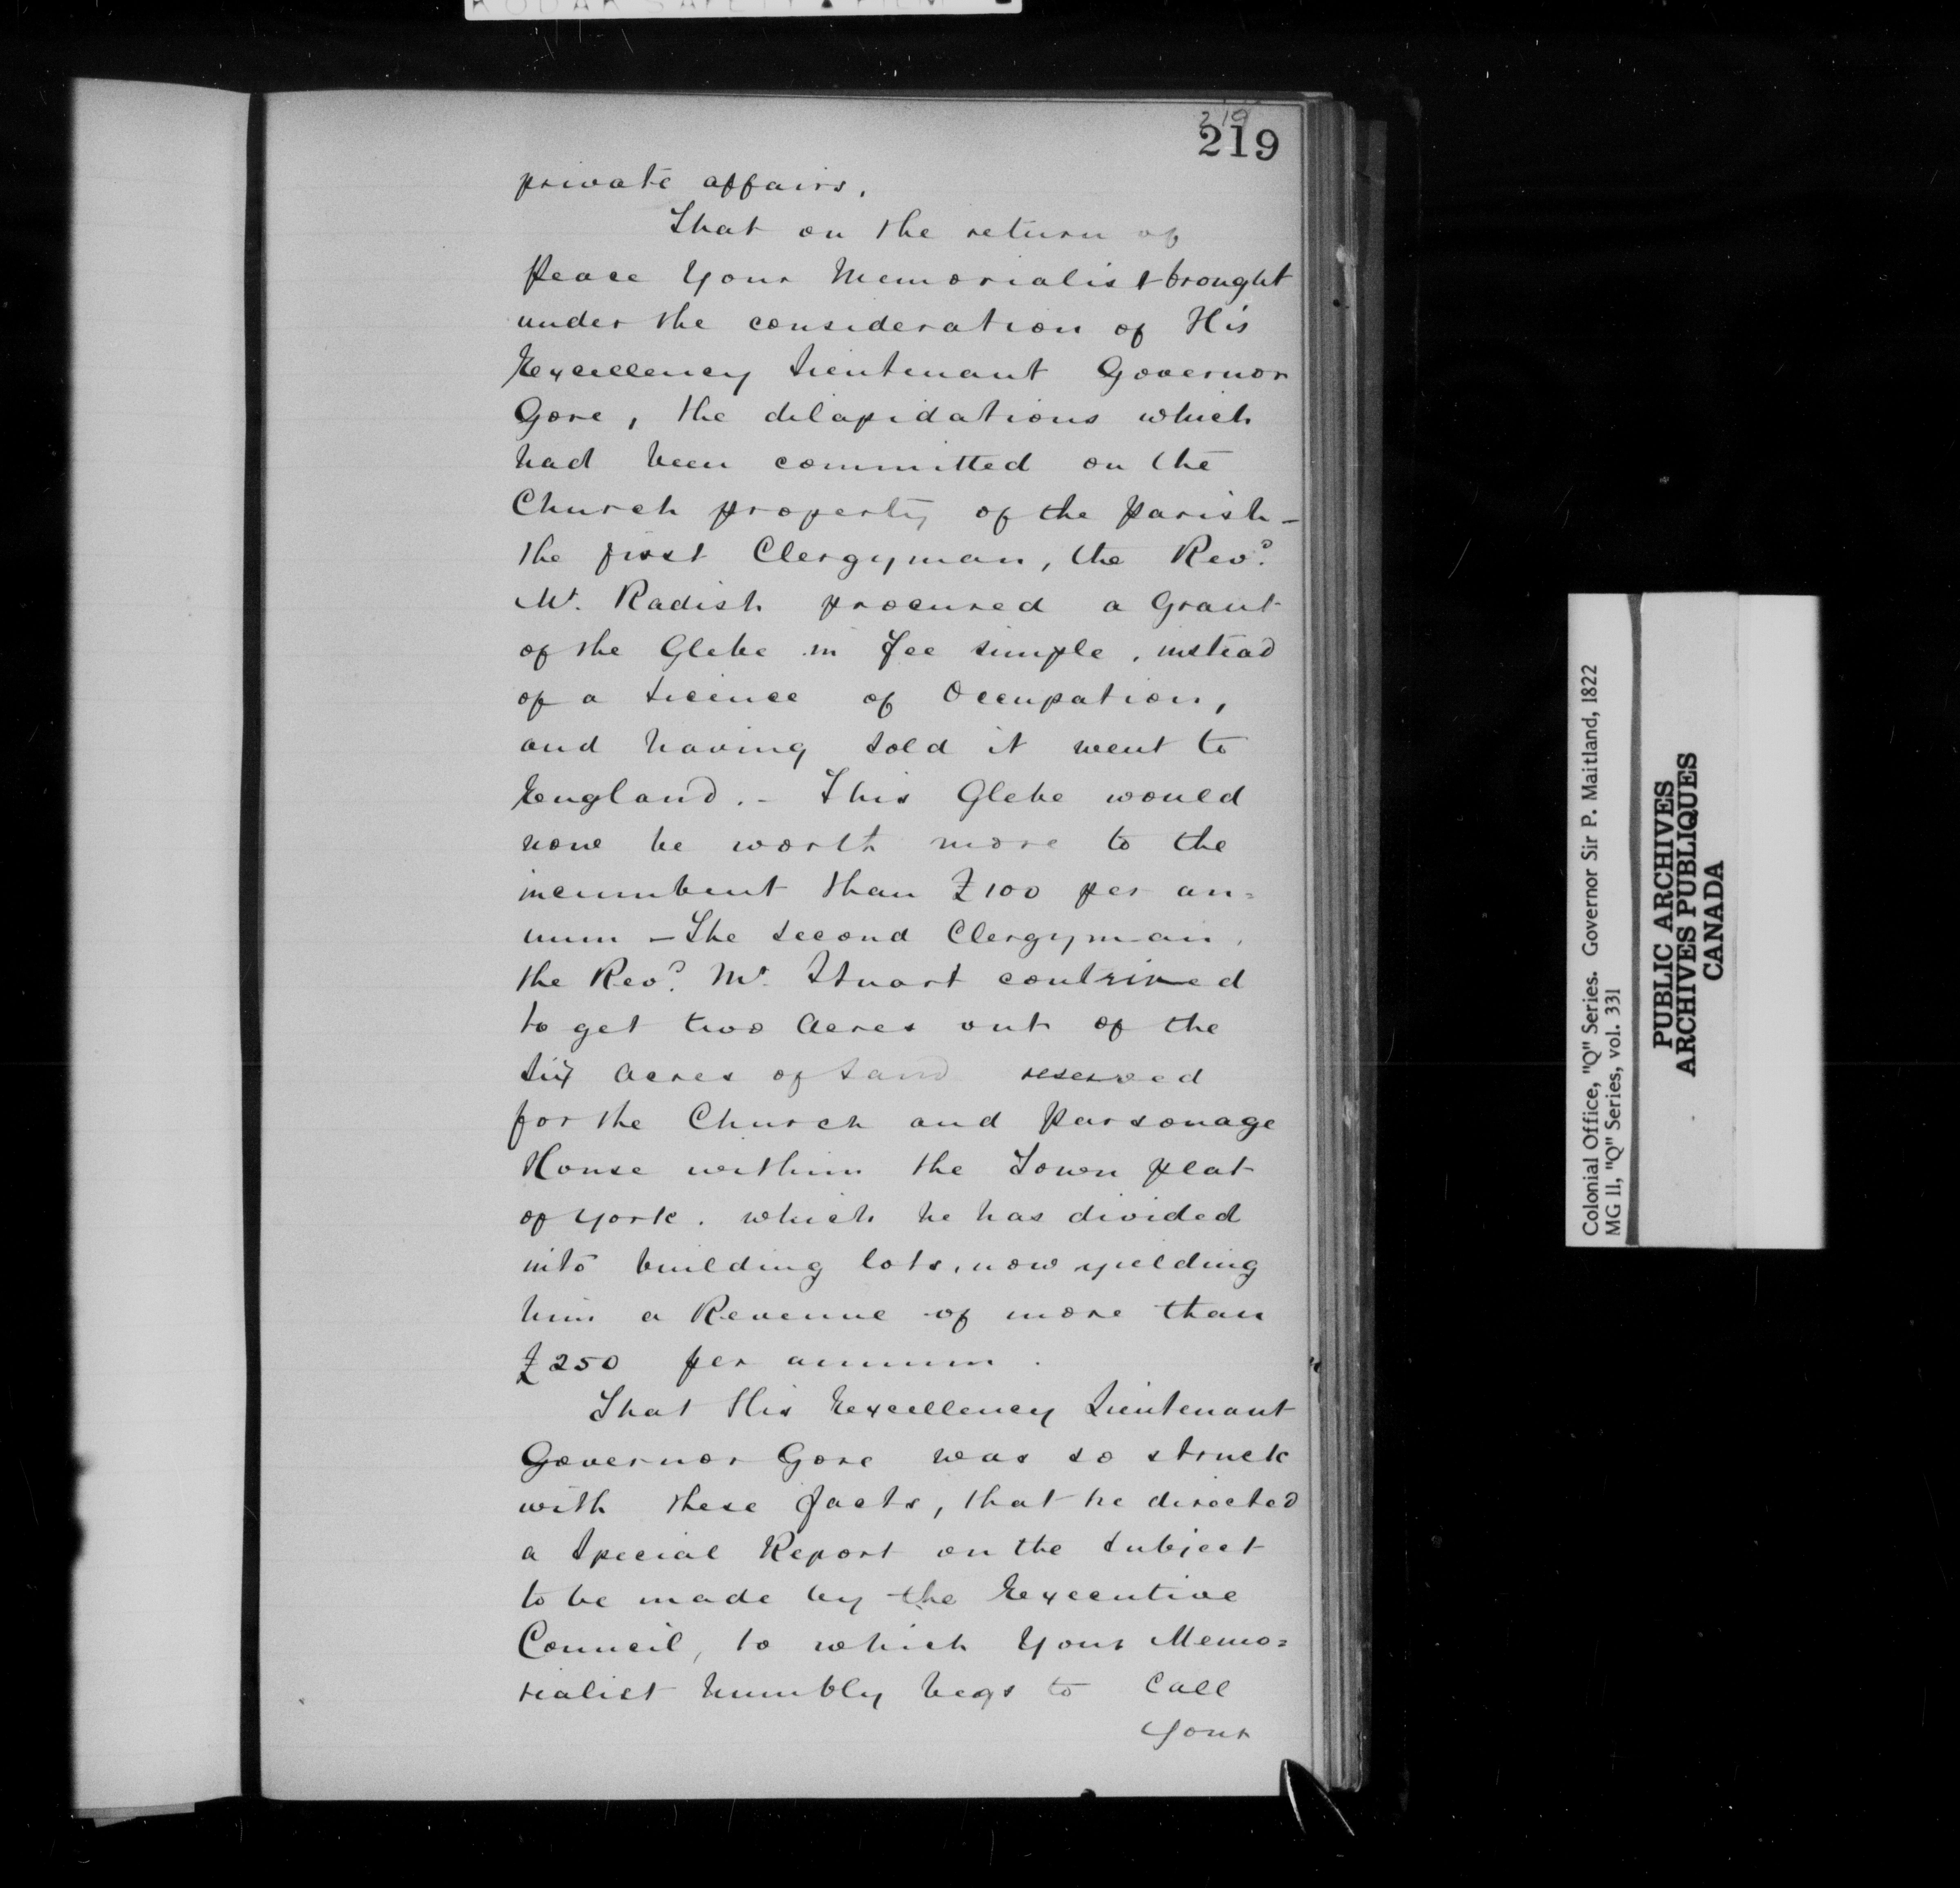 219
219
private affairs.
That on the return of
Peace Your Memorialist brought
under the consideration of His
Excellency Lieutenant Governor
Gore, the dilapidations which
had been committed on the
Church property of the Parish -
the first Clergyman, the Revd.
Mr. Radish procured a Grant
of the Glebe in Fee simple, instead
of a Licence of Occupation,
and having sold it went to
England. - This Glebe would
now be worth more to the
incumbent than £100 per an=
num - The Second Clergyman,
the Revd. Mr. Stuart contrived
to get two Acres out of the
Six Acres of Land reserved
for the Church and Parsonage
House within the Town plat
of York. which he has divided
into building lots, now yielding
him a Revenue of more than
£250 per annum.
That His Excellency Lieutenant
Governor Gore was so struck
with these facts, that he directed
a Special Report on the Subject
to be made by the Executive
Council, to which Your Memo=
rialist humbly begs to Call
Your
Colonial Office, "Q" Series. Governor Sir P. Maitland, 1822
MG 11, "Q" Series, vol. 331
PUBLIC ARCHIVES
ARCHIVES PUBLIQUES
CANADA